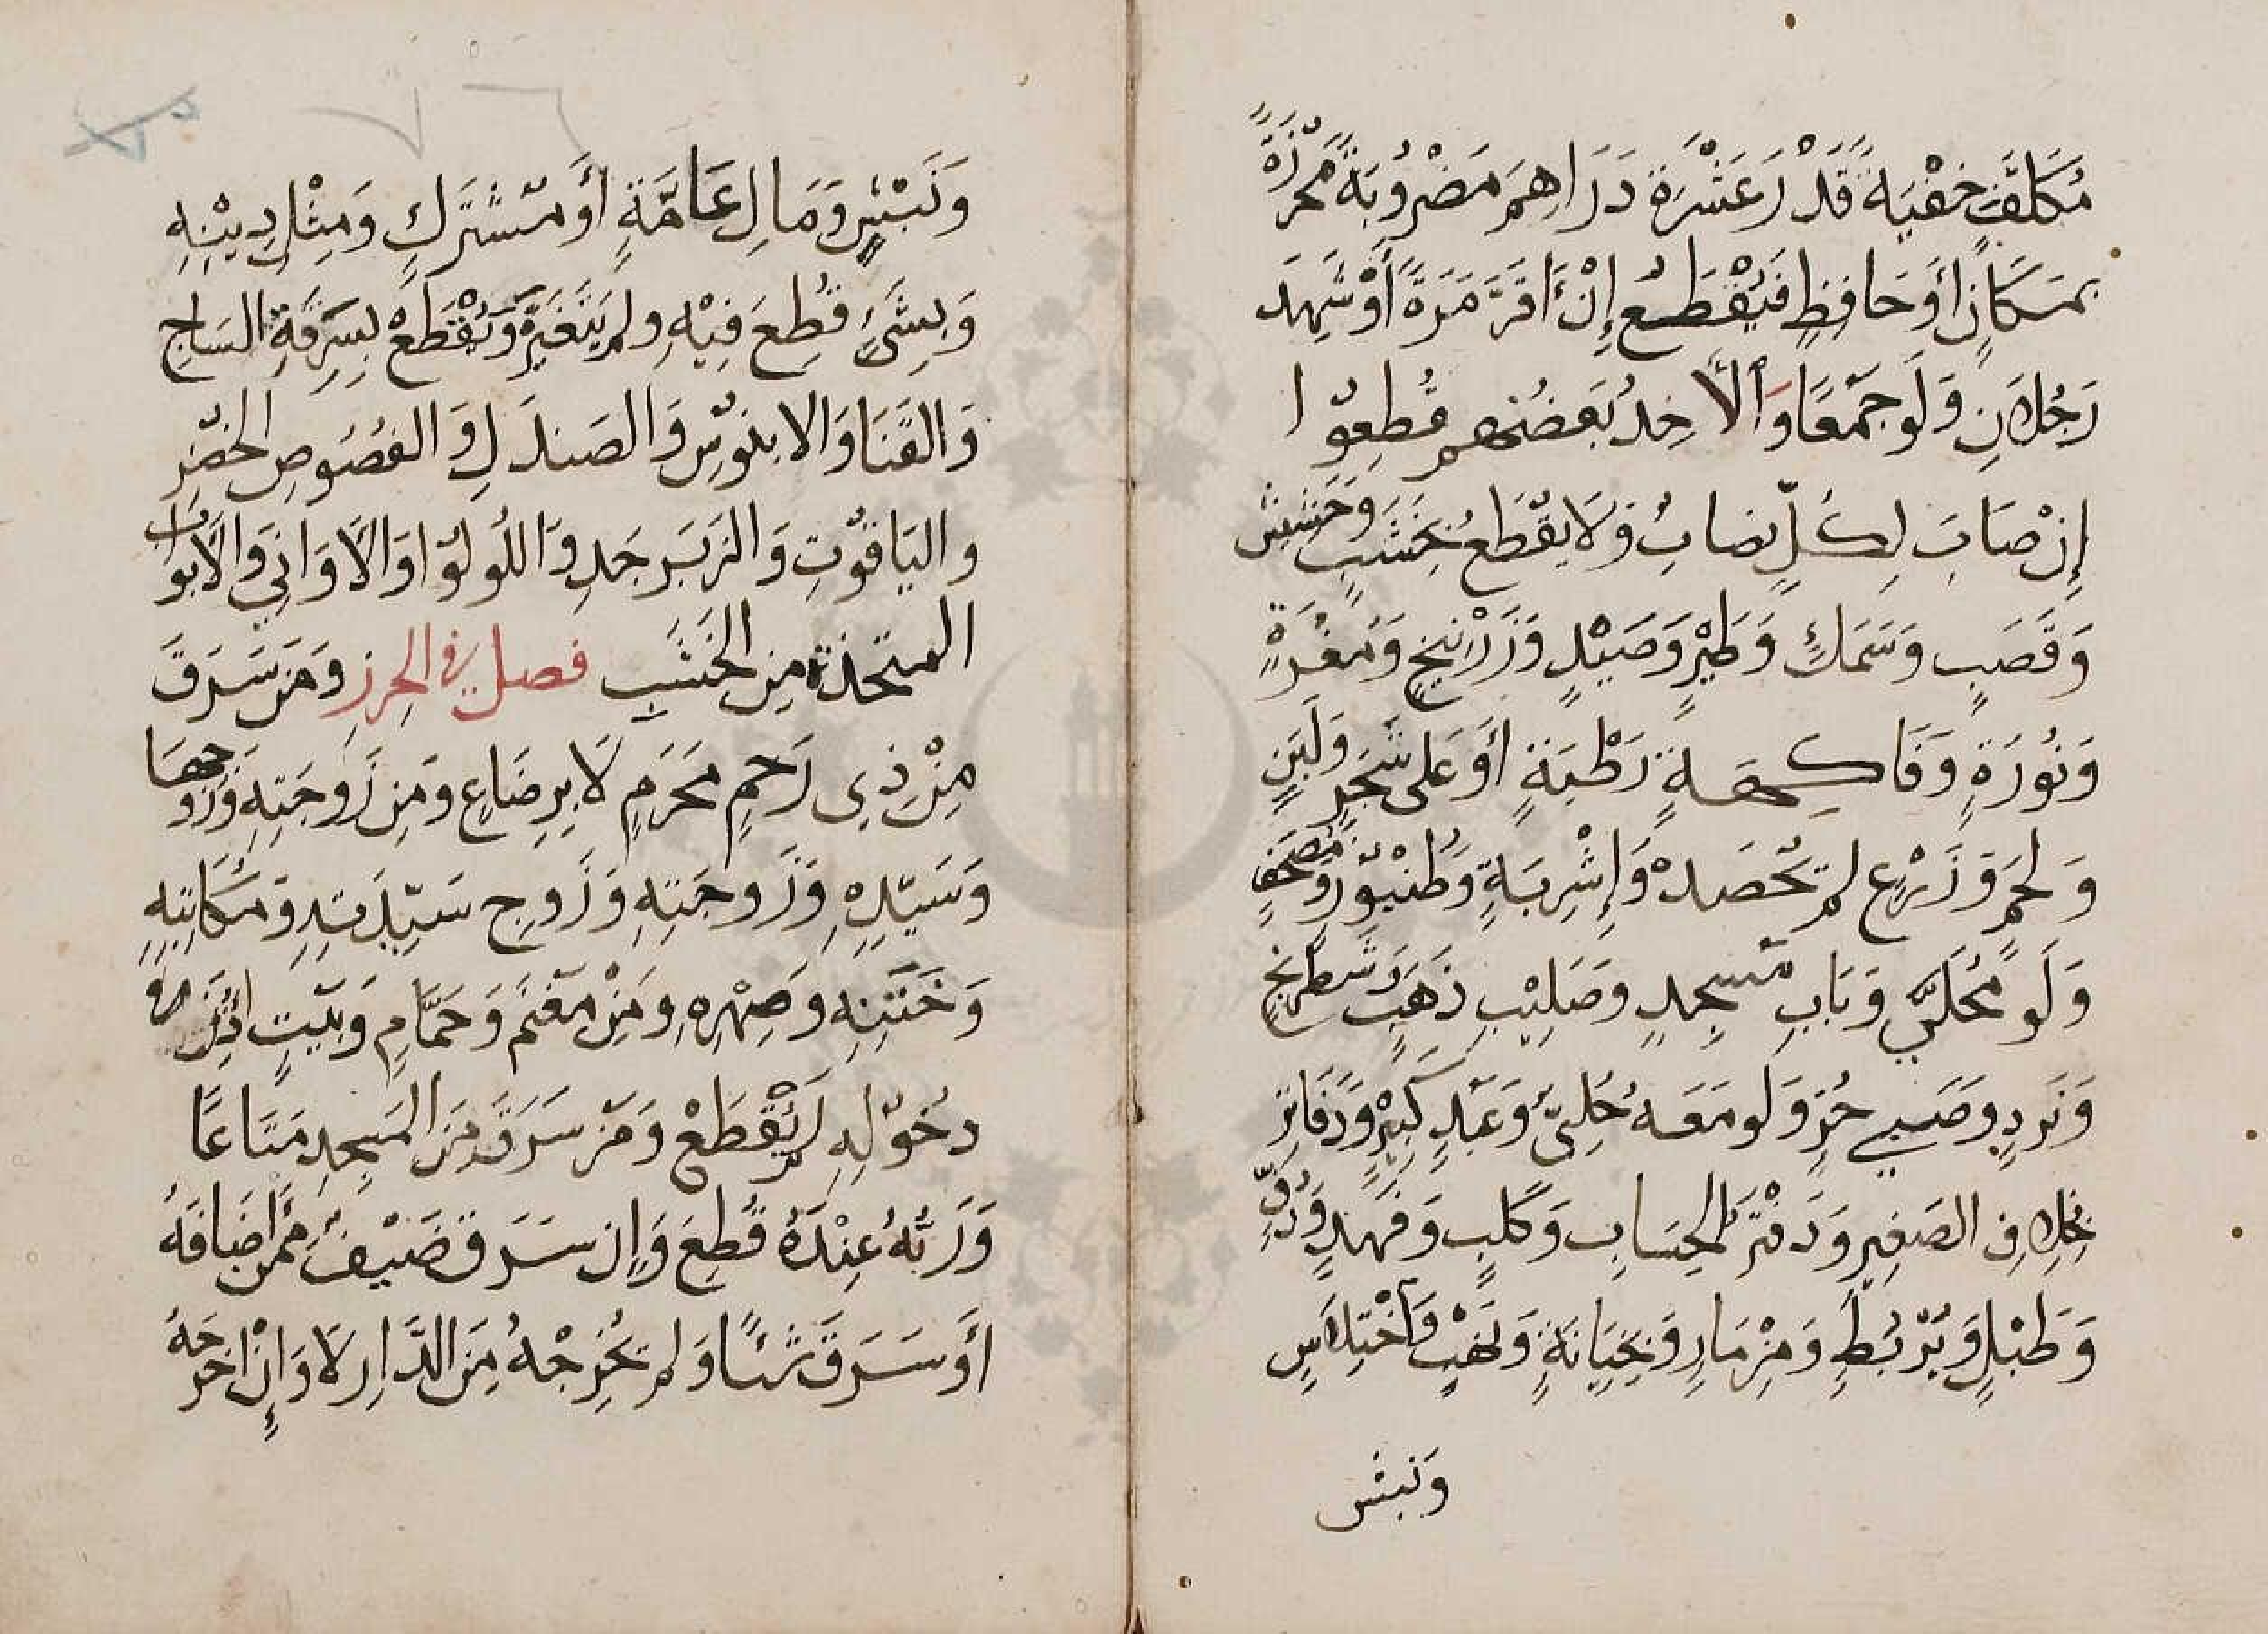 مُكَلَّفٍ خُفْيَةً قَدْرَ عَشَرَةِ دَرَاهِمَ مَضْرُوبَةً مُحْرَزَةً
بِمَكَانٍ أَوْ حَافِظٍ فَيُقْطَعُ إِنْ أَقَرَّ مَرَّةً أَوْ شَهِدَ
رَجُلَانِ وَلَوْ جَمْعًا وَالْأَخِذُ بَعْضُهُمْ قُطِعُوا
إِنْ صَابَ لِكُلٍّ نِصَابٌ وَلَا يُقْطَعُ بِخَشَبٍ وَحَشِيشٍ
وَقَصَبٍ وَسَمَكٍ وَطَيْرٍ وَصَيْدٍ وَزَرْنِيخٍ وَمَغْرَةٍ
وَنُورَةٍ وَفَاكِهَةٍ رَطْبَةٍ أَوْ عَلَى شَجَرٍ وَلَبَنٍ
وَلَحْمٍ وَزَرْعٍ لَمْ يُحْصَدْ وَإِشْرِبَةٍ وَطُنْبُورٍ وَمُصْحَفٍ
وَلَوْ مُحَلَّيً وَبَابِ مَسْجِدٍ وَصَلِيْبِ ذَهَبٍ وَشَطْرَنْجٍ
وَنَرْدٍ وَصَبِيٍّ حُرٍّ وَلَوْ مَعَهُ حُلِيٌّ وَعَبْدٍ كَبِيْرٍ وَدَفَاتِرَ
بِخِلَافِ الصَغِيرِ وَدَفْتَرِ الْحِسَابِ وَكَلْبٍ وَفَهْدٍ وَدُفٍّ
وَطَبْلٍ وَبَرْبُطٍ وَمِزْمَارٍ وَبِخِيَانَةٍ وَنَهْبٍ وَاخْتِلَاسٍ
وَنَبْشٍ
وَنَبْشٍ وَمَالِ عَامَّةٍ أَوْ مُشْتَرَكٍ وَمِثْلِ دِيْنِهِ
وَبِشَيْءٍ قُطِعَ فِيْهِ وَلَمْ يَتَغَيَّرْ وَيُقْطَعُ بِسَرِقَةِ السَاجِ
وَالقَنَا وَالابنُوسِ وَالصَندَلِ وَالفُصُوصِ الخُضْرِ
وَاليَاقُوتِ وَالزَبَرجَدِ وَاللُولُوا وَالأَوَانِي وَالأَبوَاب
المتَّخَذَةِ مِنَ الخَشَبِ فصل في الحِرزِ وَمَن سَرَقَ
مِنْ ذِي رَحِمٍ مَحْرَمٍ لَا بِرِضَاعٍ وَمِن زَوجَتِهِ وَزَوجِهَا
وَسَيِّدِهِ وَزَوجَتِهِ وَزَوجِ سَيِّدَتِهِ وَمُكَاتَبِهِ
وَخَتَنِهِ وَصِهْرِهِ وَمِنْ مَغْنَمٍ وَحَمَّامٍ وَبَيْتٍ اُذِنَ في
دُخُولِهِ لَمْ يُقْطَعْ وَمَن سَرَقَ مِنَ المَسجِدِ مَتَاعًا
وَرَبُّهُ عِنْدَهُ قُطِعَ وَإِن سَرَقَ ضَيْفٌ مِمَّن أَضَافَهُ
أَو سَرَقَ شَئًا وَلَم يُخْرِجْهُ مِنَ الدَّارِ لَا وَإِنْ اخرَجَهُ